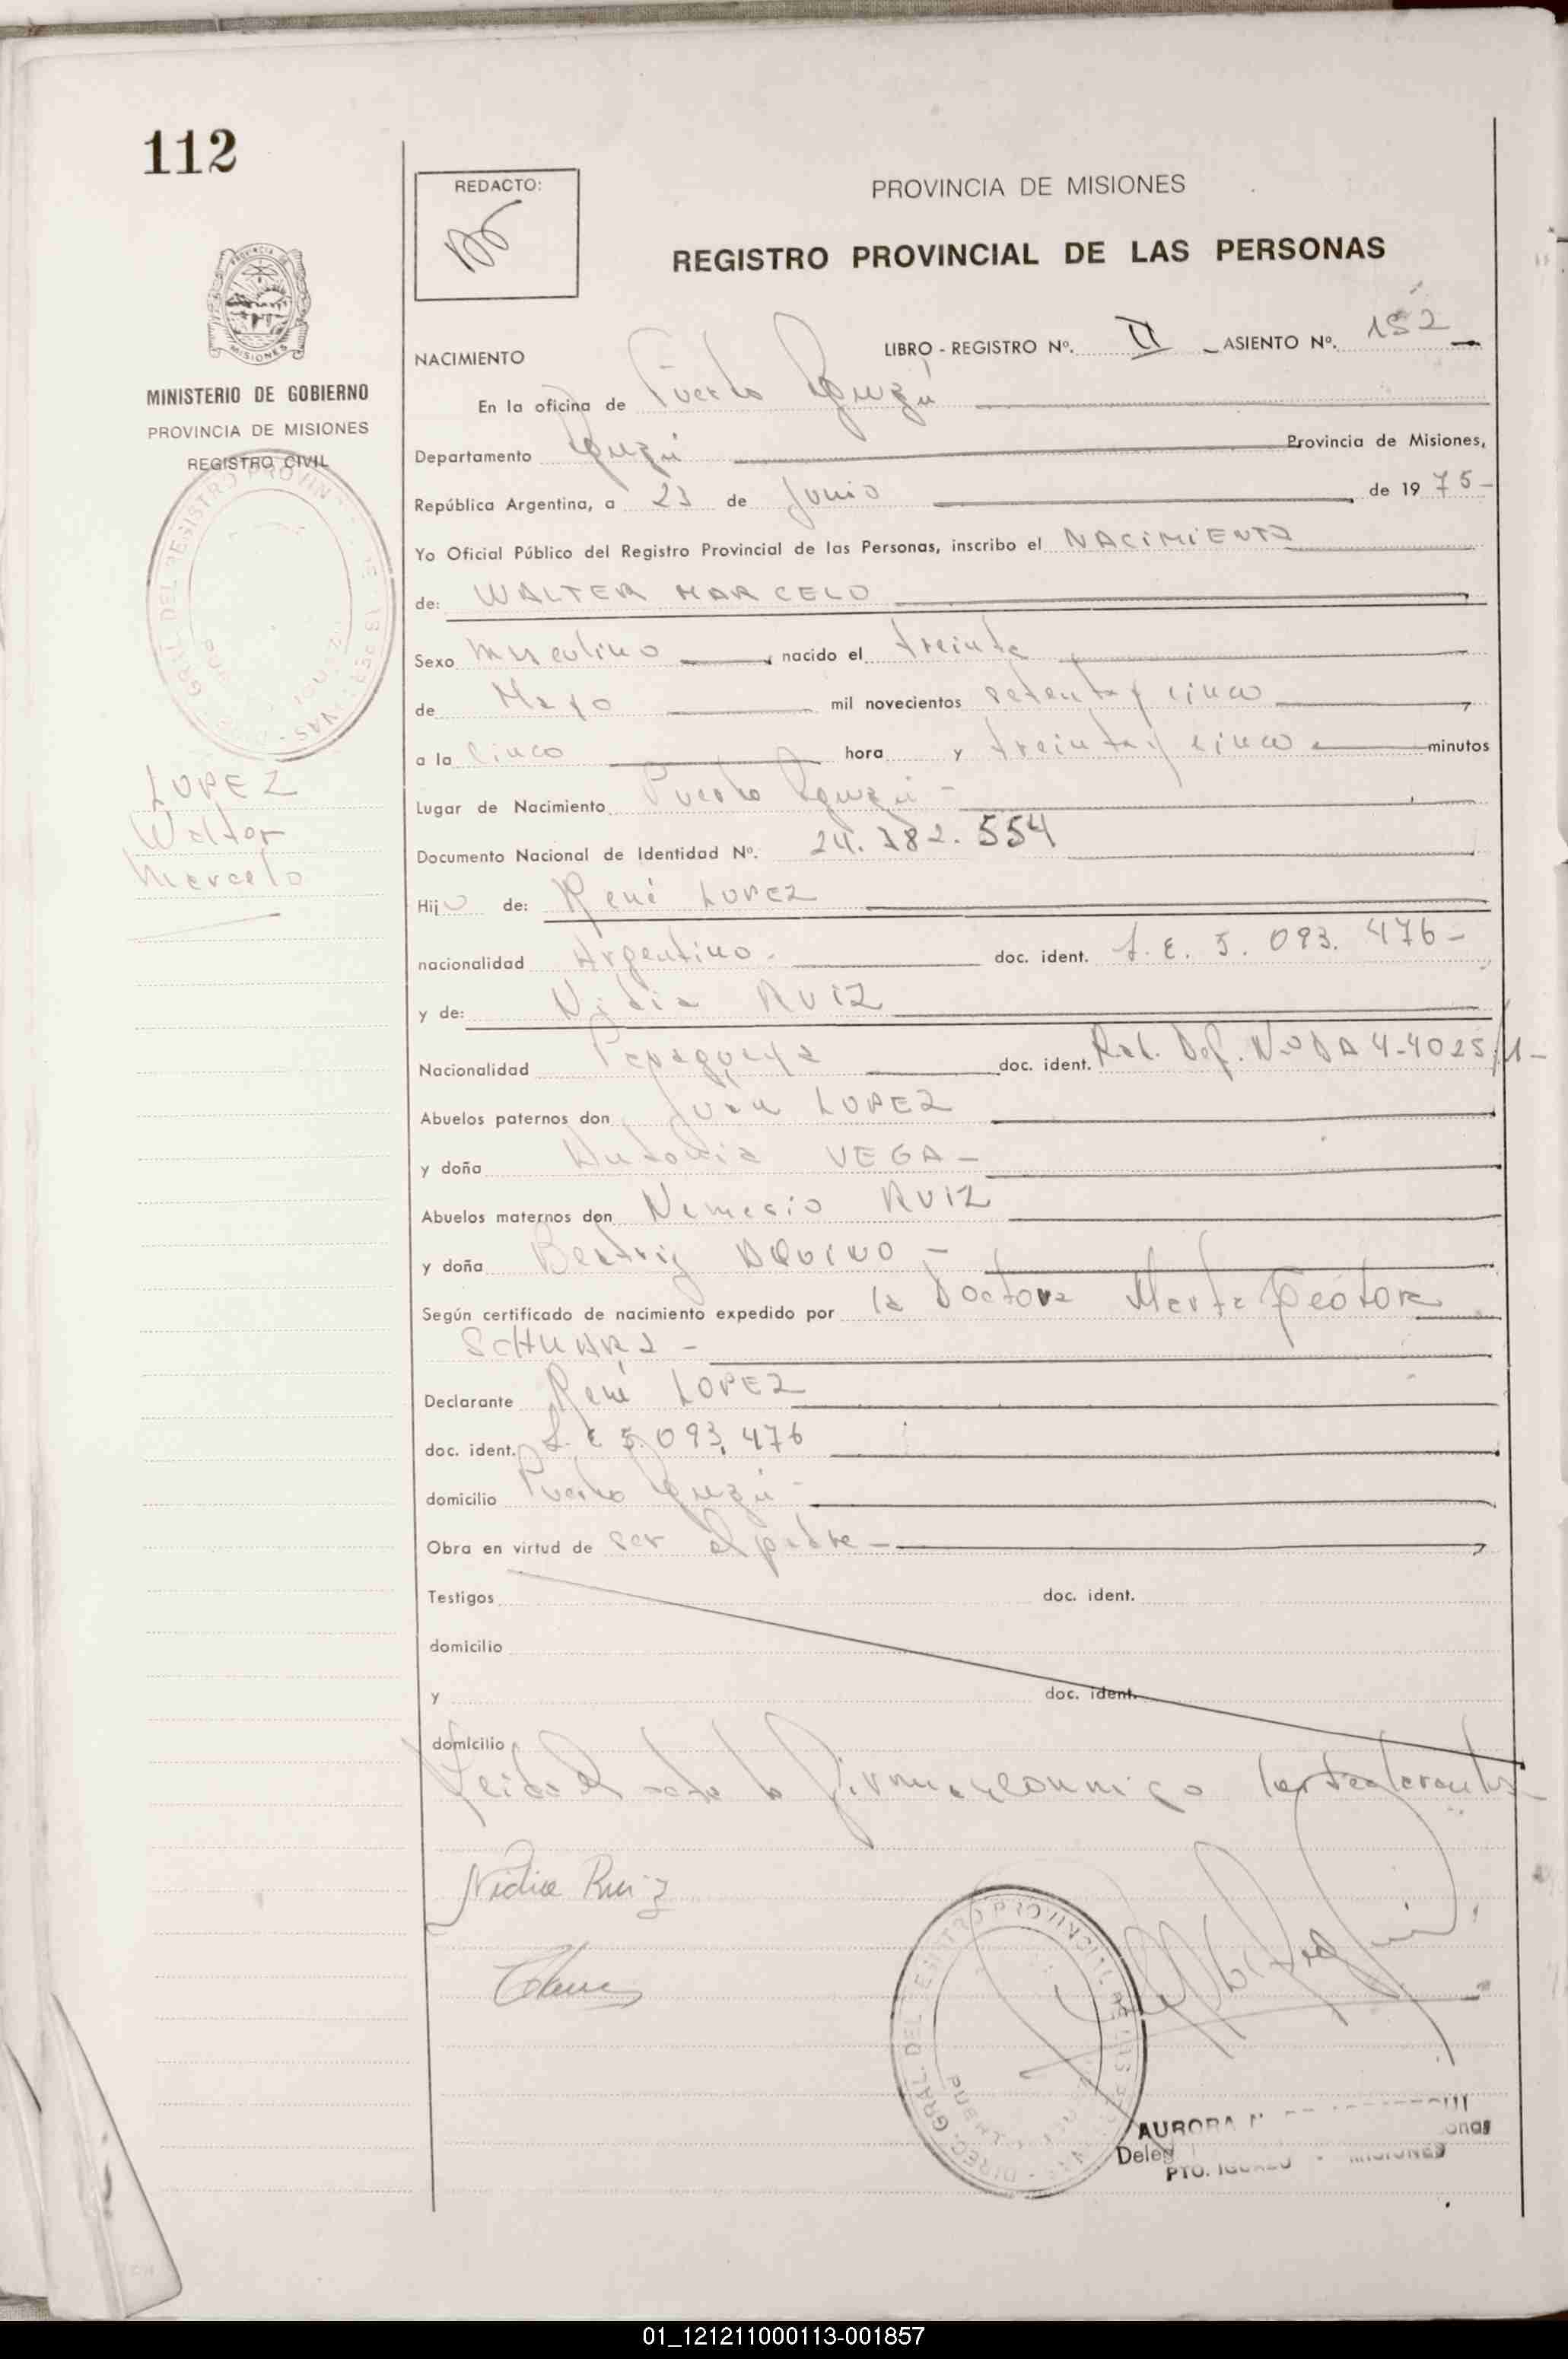 112
REDACTO:
PROVINCIA DE MISIONES
REGISTRO PROVINCIAL DE LAS PERSONAS
LIBRO - REGISTRO Nº. II ASIENTO Nº. 152
NACIMIENTO
MISIONES
MINISTERIO DE GOBIERNO
PROVINCIA DE MISIONES
REGISTRO CIVIL
En la oficina de Puerto Iguazú
Departamento Iguazú Provincia de Misiones,
República Argentina, a 23 de Junio de 1975-
Yo Oficial Público del Registro Provincial de las Personas, inscribo el NACIMIENTO
de: WALTER MARCELO
Sexo masculino, nacido el treinta
de Mayo mil novecientos setenta y cinco
a la cinco hora y treinta y cinco minutos
LOPEZ
Walter
Marcelo
Lugar de Nacimiento Puerto Iguazú -
Documento Nacional de Identidad Nº. 24.382.554
Hijo de: René LOPEZ
nacionalidad Argentino. doc. ident. L.E. 5.093.476-
y de: Nidia RUIZ
Nacionalidad Paraguaya doc. ident. Rad. Def. Nº DA 4-4025/1-
Abuelos paternos don Juan LOPEZ
y doña Antonia VEGA -
Abuelos maternos don Nemesio RUIZ
y doña Beatriz AQUINO -
Según certificado de nacimiento expedido por la Doctora Marta Teodora
SCHUARZ -
Declarante René LOPEZ
doc. ident. L.E 5.093.476
domicilio Puerto Iguazú -
Obra en virtud de ser el padre -
Testigos doc. ident.
domicilio
y doc. ident.
domicilio
Leida el acta la firman conmigo los declarantes
Nidia Ruiz
DIREC. GRAL. DEL REGISTRO PROVINCIAL DE LAS
AURORA
Deleg
PTO. IGUAZU - MISIONES
01_121211000113-001857